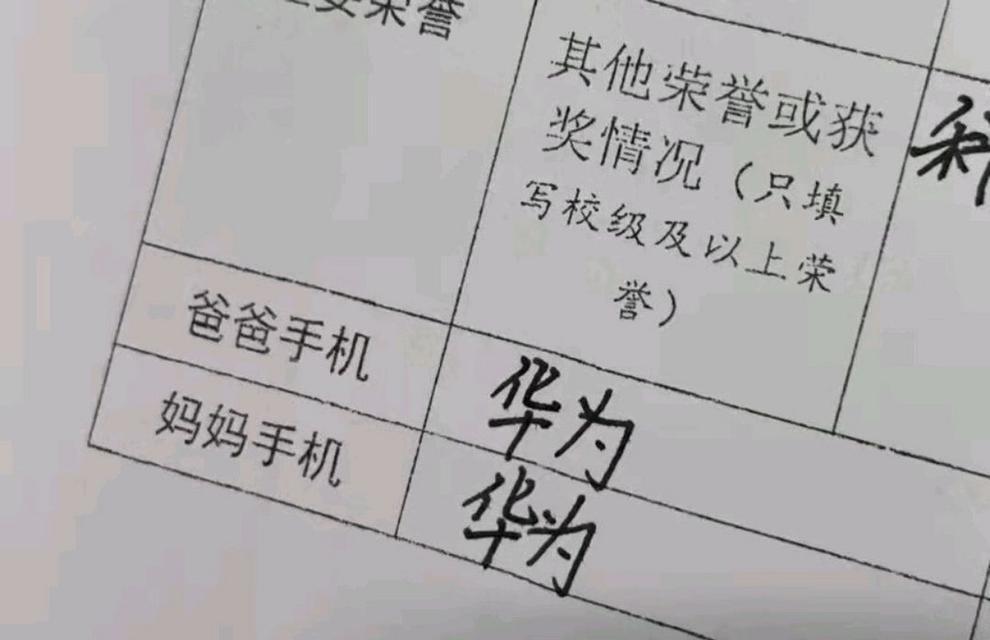 主要荣誉
其他荣誉或获
奖情况（只填
写校级及以上荣
誉）
爸爸手机
华为
妈妈手机
华为